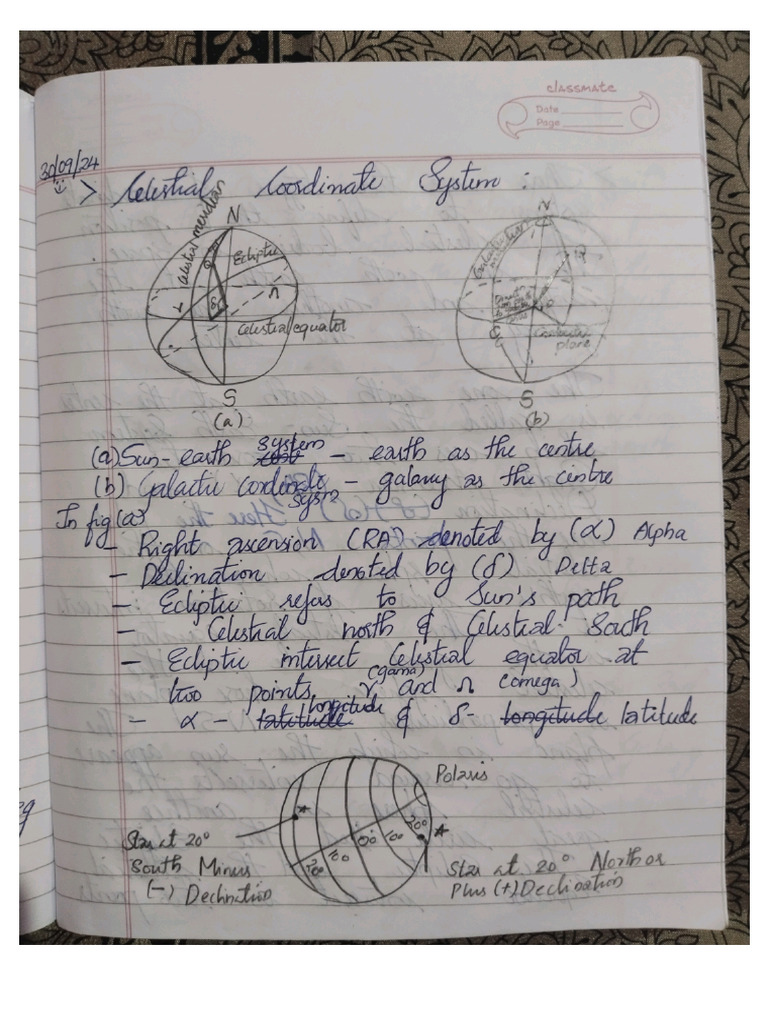 classmate
Date
Page
30/09/24
> Celestial Coordinate System:
N
Celestial meridian
Ecliptic
γ
δ
Ω
Celestial equator
S
(a)
N
plane
S
(b)
(a) Sun-earth system - earth as the centre
(b) Galactic cordinate system - galaxy as the centre
In fig(a)
- Right ascension (RA) denoted by (α) Alpha
- Declination denoted by (δ) Delta
- Ecliptic refers to Sun's path
- Celestial north & Celestial South
- Ecliptic intersect Celestial equator at
two points, γ (gama) and Ω (omega)
- α - latitude longitude & δ - longitude latitude
Polaris
Star at 20°
South Minus
(-) Declination
20°
10°
0°
10°
20°
Star at 20° North or
Plus (+) Declination